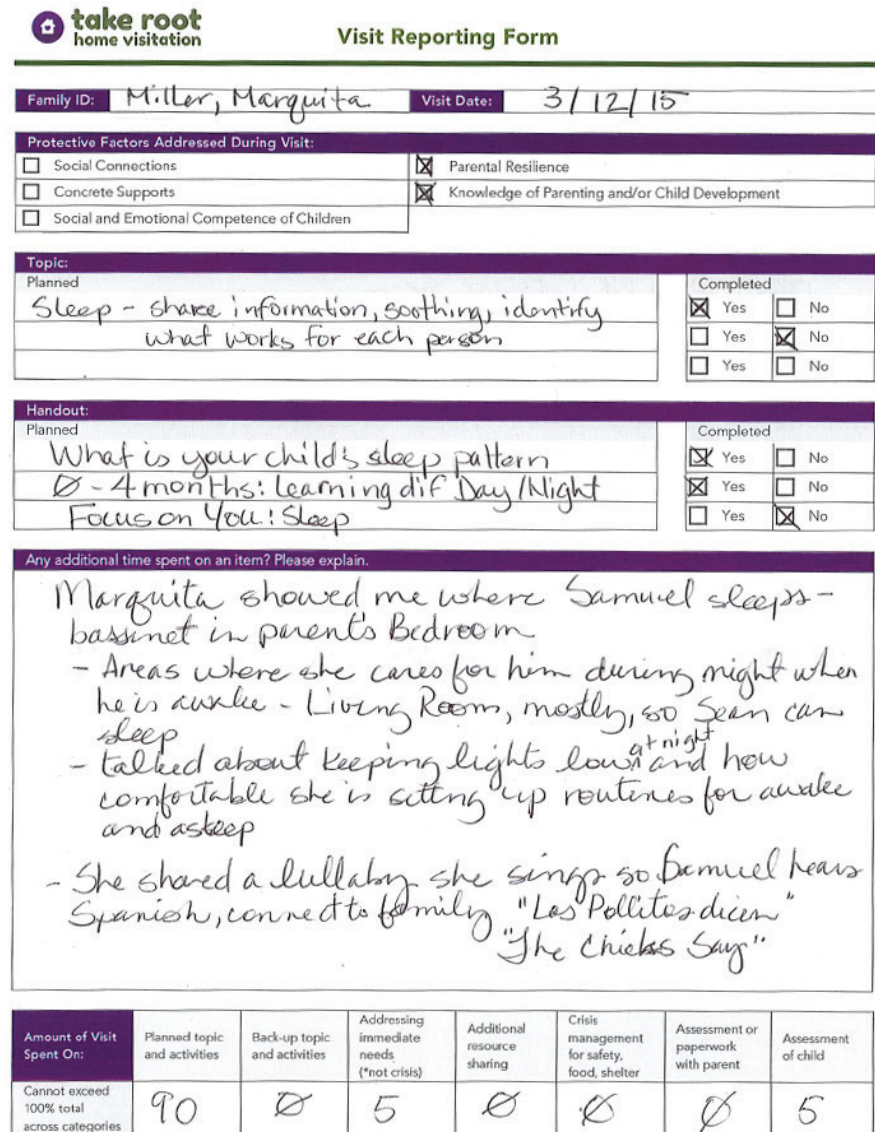 take root
home visitation
Visit Reporting Form
Family ID: Miller, Marquita Visit Date: 3/12/15
Protective Factors Addressed During Visit:
Social Connections Parental Resilience
Concrete Supports Knowledge of Parenting and/or Child Development
Social and Emotional Competence of Children
Topic:
Planned Completed
Sleep - share information, soothing, identify Yes No
what works for each person Yes No
Yes No
Handout:
Planned Completed
What is your child's sleep pattern Yes No
0 - 4 months: Learning dif Day/Night Yes No
Focus on You: Sleep Yes No
Any additional time spent on an item? Please explain.
Marquita showed me where Samuel sleeps -
bassinet in parent's Bedroom
- Areas where she cares for him during night when
he is awake - Living Room, mostly, so Sean can
sleep
- talked about keeping lights low at night and how
comfortable she is setting up routines for awake
and asleep
- She shared a lullaby she sings so Samuel hears
Spanish, connect to family "Los Pollitos dicen"
"The Chicks Say"
Amount of Visit
Spent On:
Planned topic
and activities
Back-up topic
and activities
Addressing
immediate
needs
(*not crisis)
Additional
resource
sharing
Crisis
management
for safety,
food, shelter
Assessment or
paperwork
with parent
Assessment
of child
Cannot exceed
100% total
across categories
90 0 5 0 0 0 5